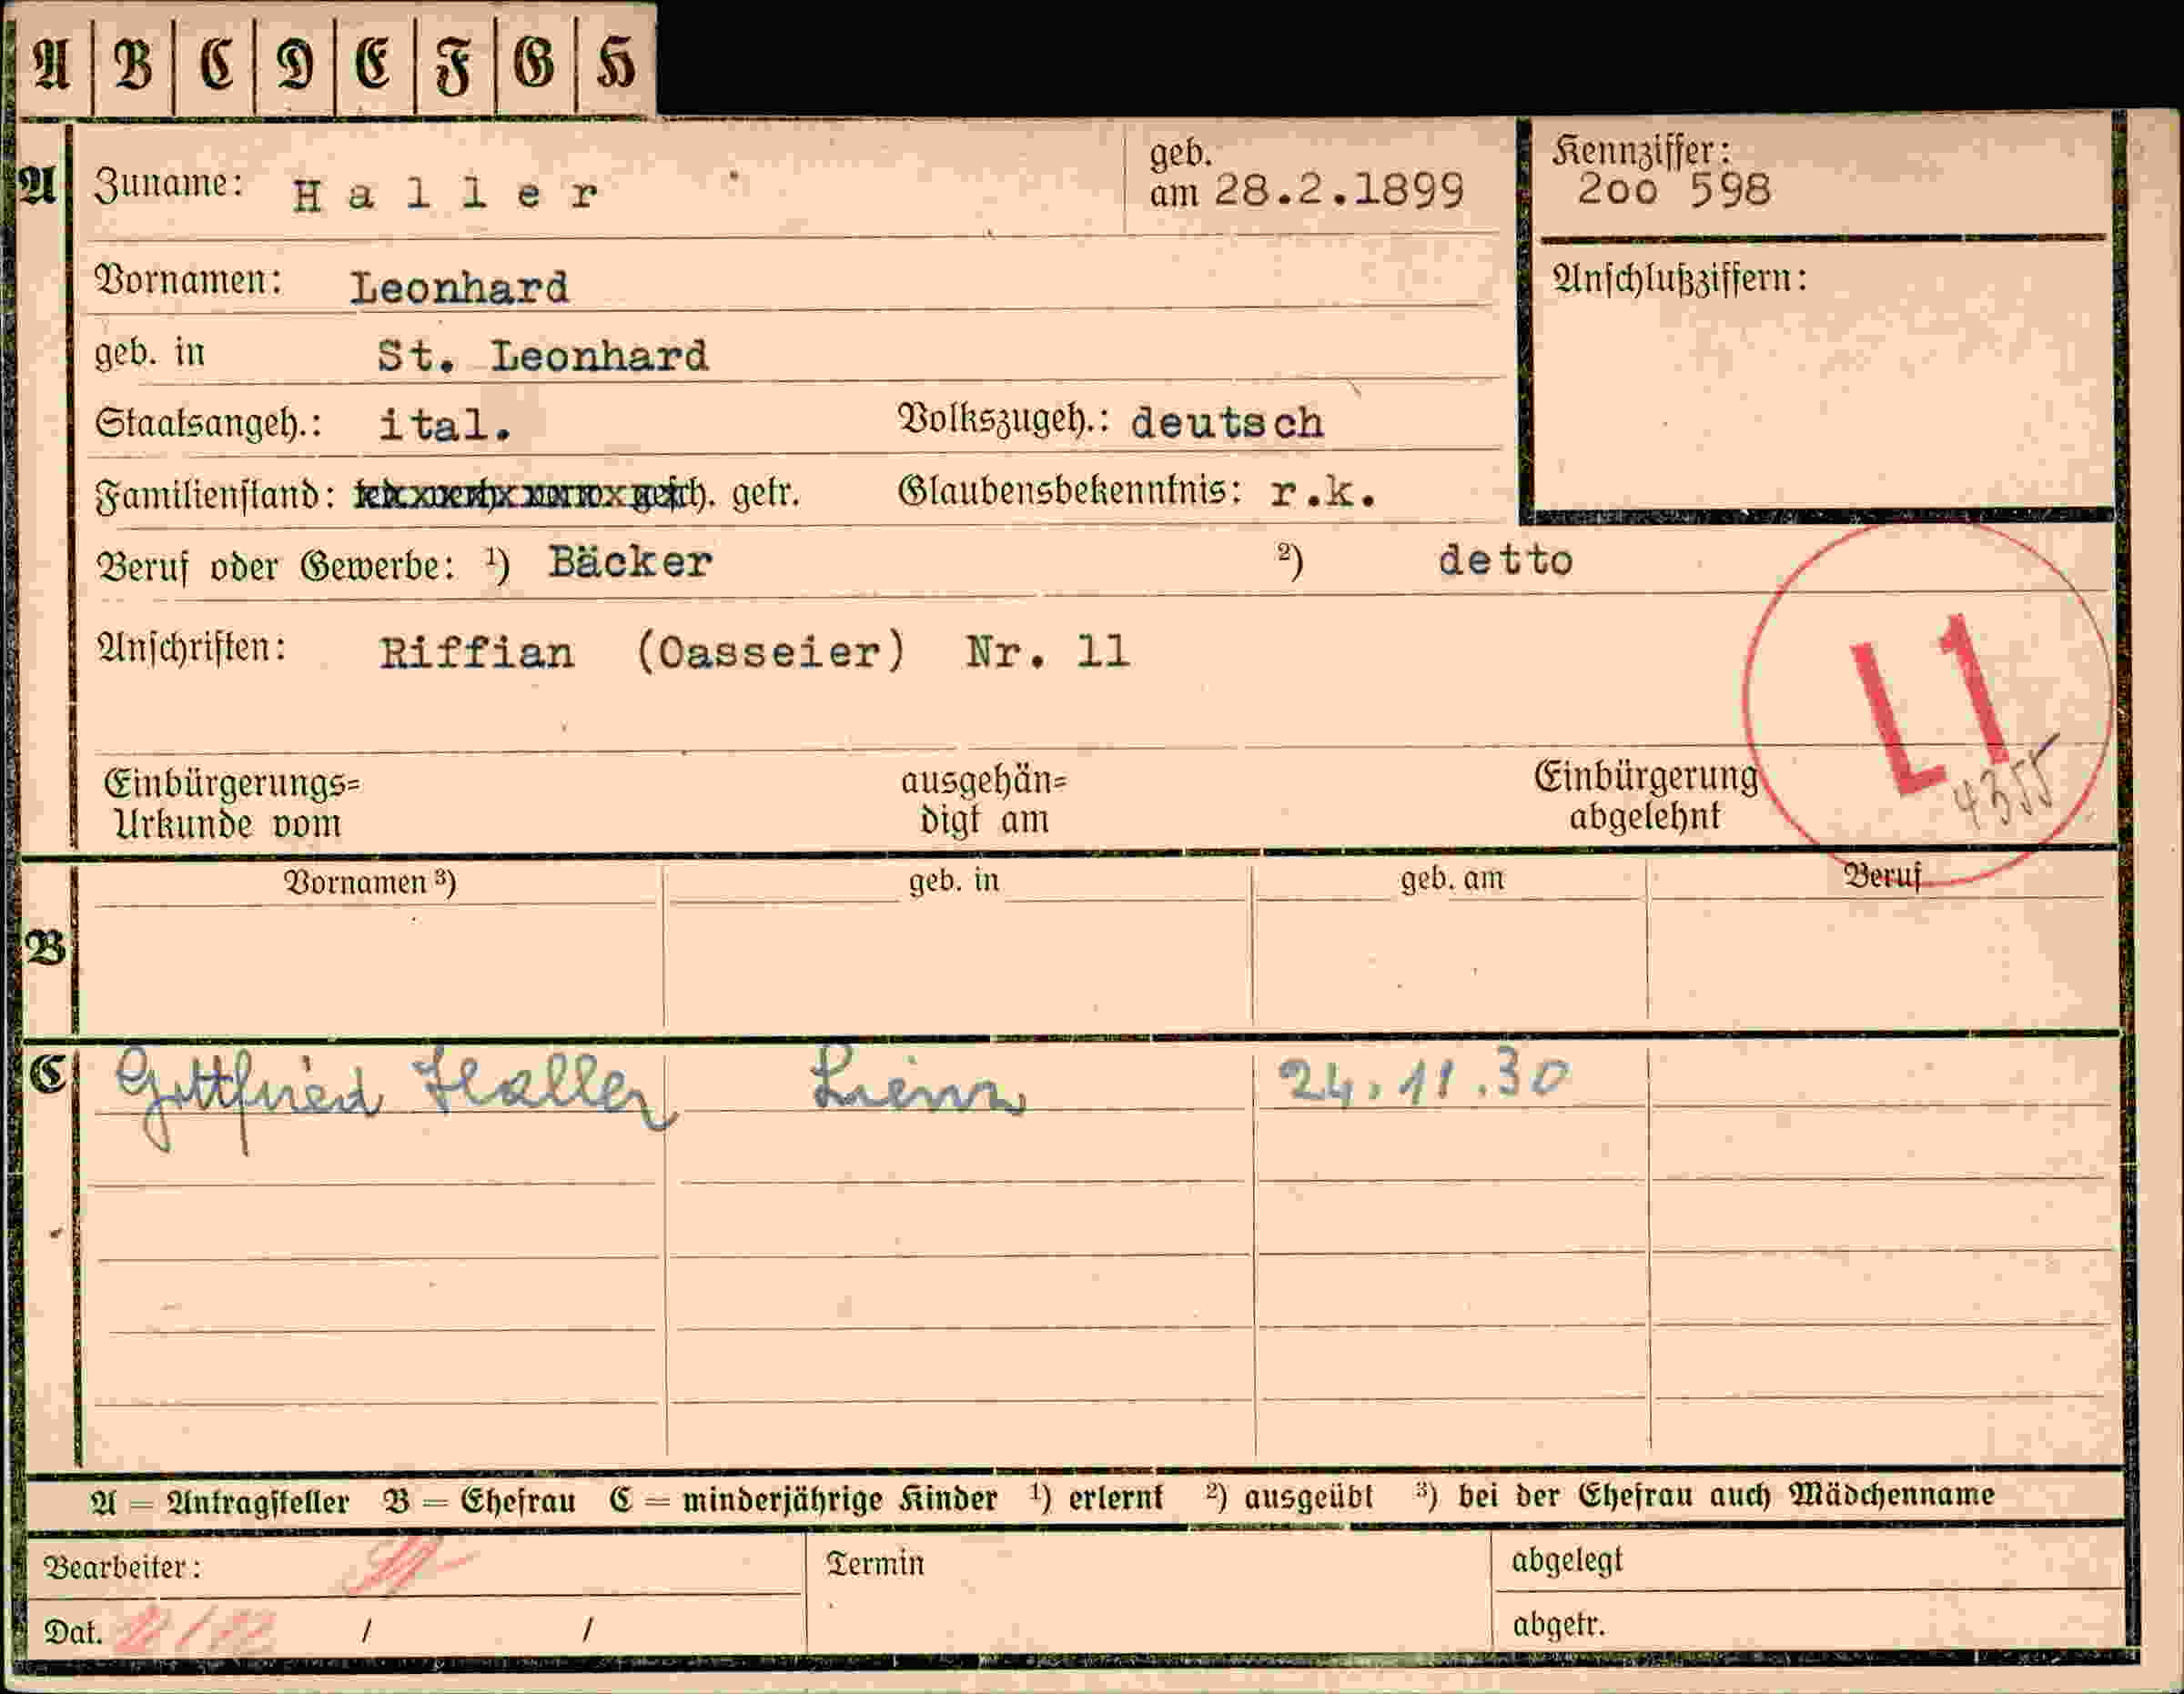 A B C D E F G H
A Zuname: Haller geb. am 28.2.1899
Kennziffer: 2oo 598
Vornamen: Leonhard
Anschlußziffern:
geb. in St. Leonhard
Staatsangeh.: ital. Volkszugeh.: deutsch
Familienstand: gesch. getr. Glaubensbekenntnis: r.k.
Beruf oder Gewerbe: ¹) Bäcker ²) detto
Anschriften: Riffian (Oasseier) Nr. 11
L1
4355
Einbürgerungs=
Urkunde vom
ausgehän=
digt am
Einbürgerung
abgelehnt
Vornamen ³) geb. in geb. am Beruf
B
C Gottfried Haller Lienz 24.11.30
A = Antragsteller B = Ehefrau C = minderjährige Kinder ¹) erlernt ²) ausgeübt ³) bei der Ehefrau auch Mädchenname
Bearbeiter: Termin abgelegt
Dat. / / abgetr.